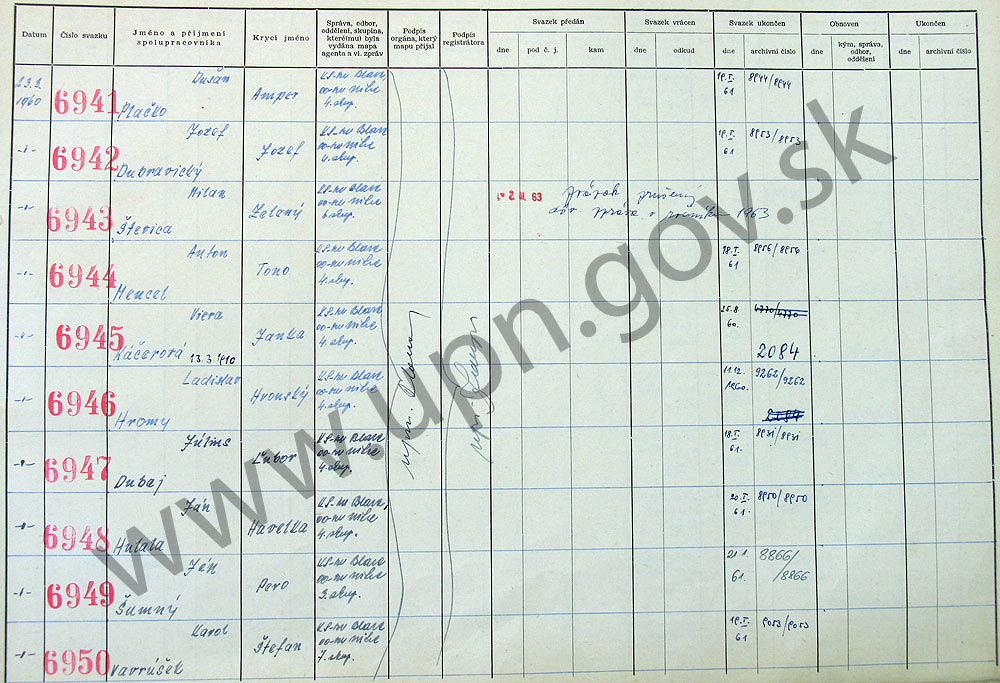 Datum
Číslo svazku
Jméno a příjmení
spolupracovníka
Krycí jméno
Správa, odbor,
oddělení, skupina,
které(mu) byla
vydána mapa
agenta a vl. zpráv
Podpis
orgána, který
mapu přijal
Podpis
registrátora
Svazek předán
dne
pod č. j.
kam
Svazek vrácen
dne
odkud
Svazek ukončen
dne
archivní číslo
Obnoven
dne
kým, správa,
odbor,
oddělení
Ukončen
dne
archivní číslo
23.3.
1960
6941
Dušán
Plačko
Amper
4. skup.
19.I.
61
8944/8944
-"-
6942
Jozef
Dubravický
Jozef
4. skup.
19.I.
61
8953/8953
-"-
6943
Milan
Števica
Zelený
6. skup.
63
zväzok zničený
1963
-"-
6944
Anton
Hencel
Tono
4. skup.
18.I.
61
8956/8956
-"-
6945
Viera
Káčerová 13.3.1910
Janka
4. skup.
25.8.
60.
4770/4770
2084
-"-
6946
Ladislav
Hromy
Hronský
4. skup.
11.12.
1960.
9262/9262
2084
-"-
6947
Július
Dubaj
Ľubor
4. skup.
18.I.
61.
8931/8931
-"-
6948
Ján
Hulala
Havelka
4. skup.
20.I.
61.
8950/8950
-"-
6949
Ján
Šumný
Pero
3. skup.
21.1.
61.
8866/
/8866
-"-
6950
Karol
Vavrúšek
Štefan
7. skup.
19.I.
61
9053/9053
www.upn.gov.sk